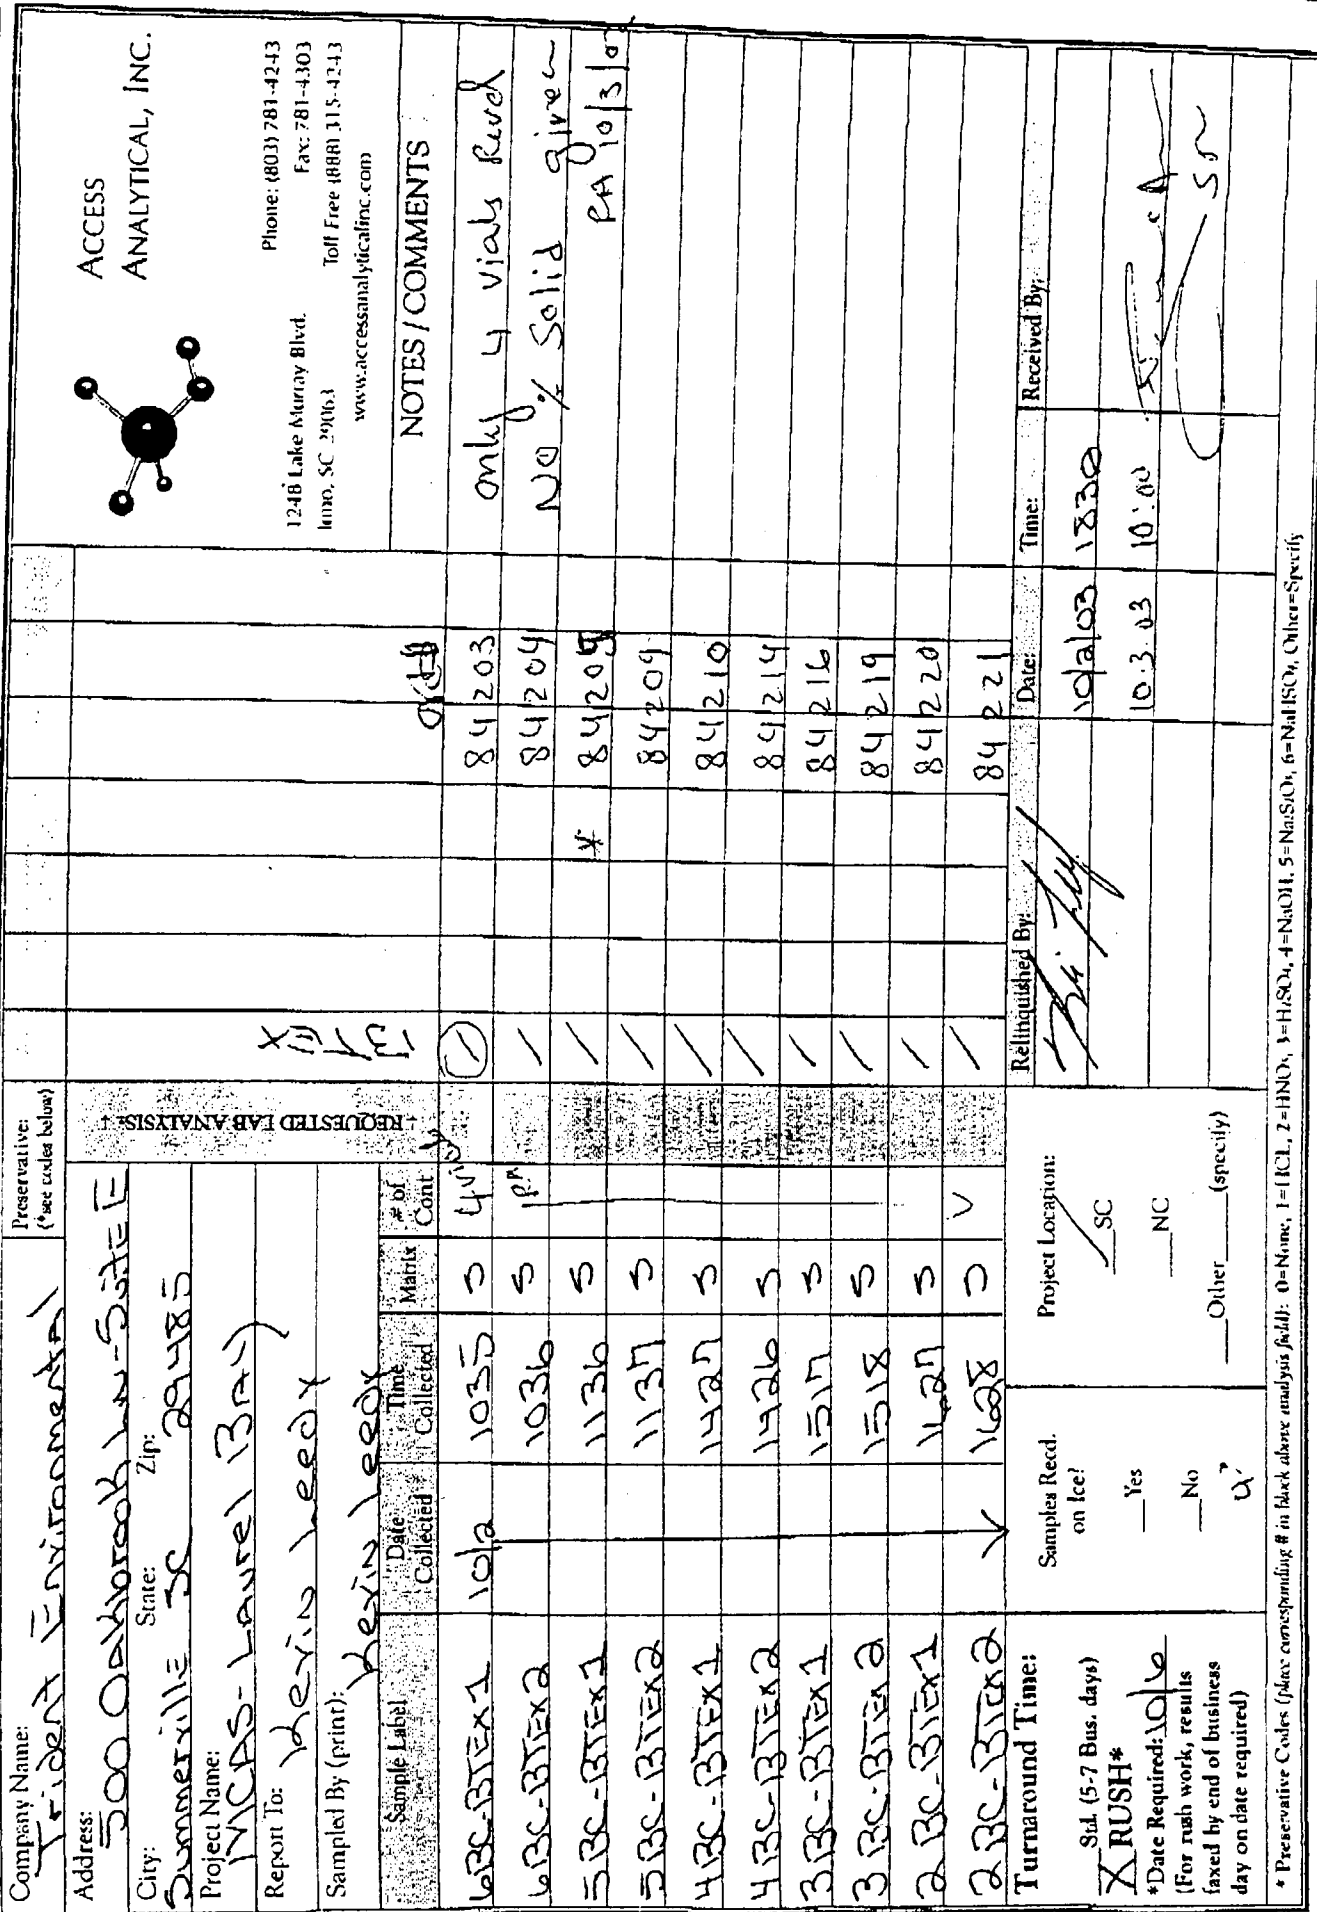 Company Name:
Trident Environmental
Address:
500 Oakbrook LN-Suite E
City: State: Zip:
Summerville SC 29485
Project Name:
MCAS-Laurel BAY
Report To: Kevin Leedy
Sampled By (print):
Kevin Leedy
Preservative:
(*see codes below)
REQUESTED LAB ANALYSIS:
BTEX
ACCESS
ANALYTICAL, INC.
1248 Lake Murray Blvd.
Irmo, SC 29063
Phone: (803) 781-4243
Fax: 781-4303
Toll Free (888) 315-4243
www.accessanalyticalinc.com
Sample Label Date Collected Time Collected Matrix # of Cont NOTES / COMMENTS
6BC-BTEX1 10/2 1035 S 4 vial 1 84203 only 4 vials Recd
6BC-BTEX2 1036 S PA / 84204 NO % Solid given
5BC-BTEX1 1136 S / * 84205 PA 10/3/03
5BC-BTEX2 1137 S / 84209
4BC-BTEX1 1427 S / 84210
4BC-BTEX2 1426 S / 84214
3BC-BTEX1 1517 S / 84216
3BC-BTEX2 1518 S / 84219
2BC-BTEX1 1627 S / 84220
2BC-BTEX2 1628 S / 84221
Turnaround Time:
__Std. (5-7 Bus. days)
X RUSH*
*Date Required: 10/6
(For rush work, results
faxed by end of business
day on date required)
Samples Recd.
on Ice?
__Yes
__No
4°
Project Location:
/ SC
__NC
__Other____(specify)
Relinquished By: Date: Time: Received By:
10/2/03 1830
10.3.03 10:00
* Preservative Codes (place corresponding # in block above analysis field): 0=None, 1=HCL, 2=HNO₃, 3=H₂SO₄, 4=NaOH, 5=Na₂S₂O₃, 6=NaHSO₄, Other=Specify